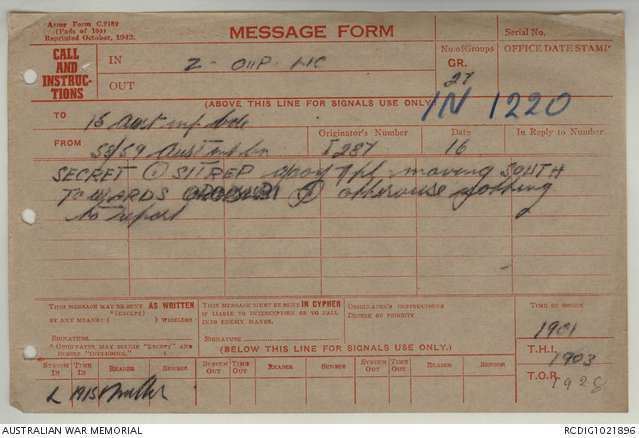 Army Form C.2182
(Pads of 100)
Reprinted October, 1942.
MESSAGE FORM
Serial No.
CALL
AND
INSTRUC-
TIONS
IN
Z-
OUT
No. of Groups
GR.
27
OFFICE DATE STAMP
(ABOVE THIS LINE FOR SIGNALS USE ONLY)
IN 1220
TO
15 Aust inf bde
FROM
58/59 Aust inf bn
Originator's Number
287
Date
16
In Reply to Number
SECRET (.) SITREP 1 pl moving SOUTH
TOWARDS (.) otherwise nothing
to report
THIS MESSAGE MAY BE SENT AS WRITTEN
(EXCEPT)
BY ANY MEANS ( ) WIRELESS
SIGNATURE
ORIGINATOR MAY DELETE "EXCEPT" AND
THIS MESSAGE MUST BE SENT IN CYPHER
IF LIABLE TO INTERCEPTION OR TO FALL
INTO ENEMY HANDS.
SIGNATURE
ORIGINATOR'S INSTRUCTIONS
DEGREE OF PRIORITY
TIME OF ORIGIN
1901
(BELOW THIS LINE FOR SIGNALS USE ONLY.)
T.H.I.
1903
SYSTEM IN TIME IN READER SENDER SYSTEM OUT TIME OUT READER SENDER SYSTEM OUT TIME OUT READER SENDER
T.O.R.
1928
L 1915
AUSTRALIAN WAR MEMORIAL
RCDIG1021896